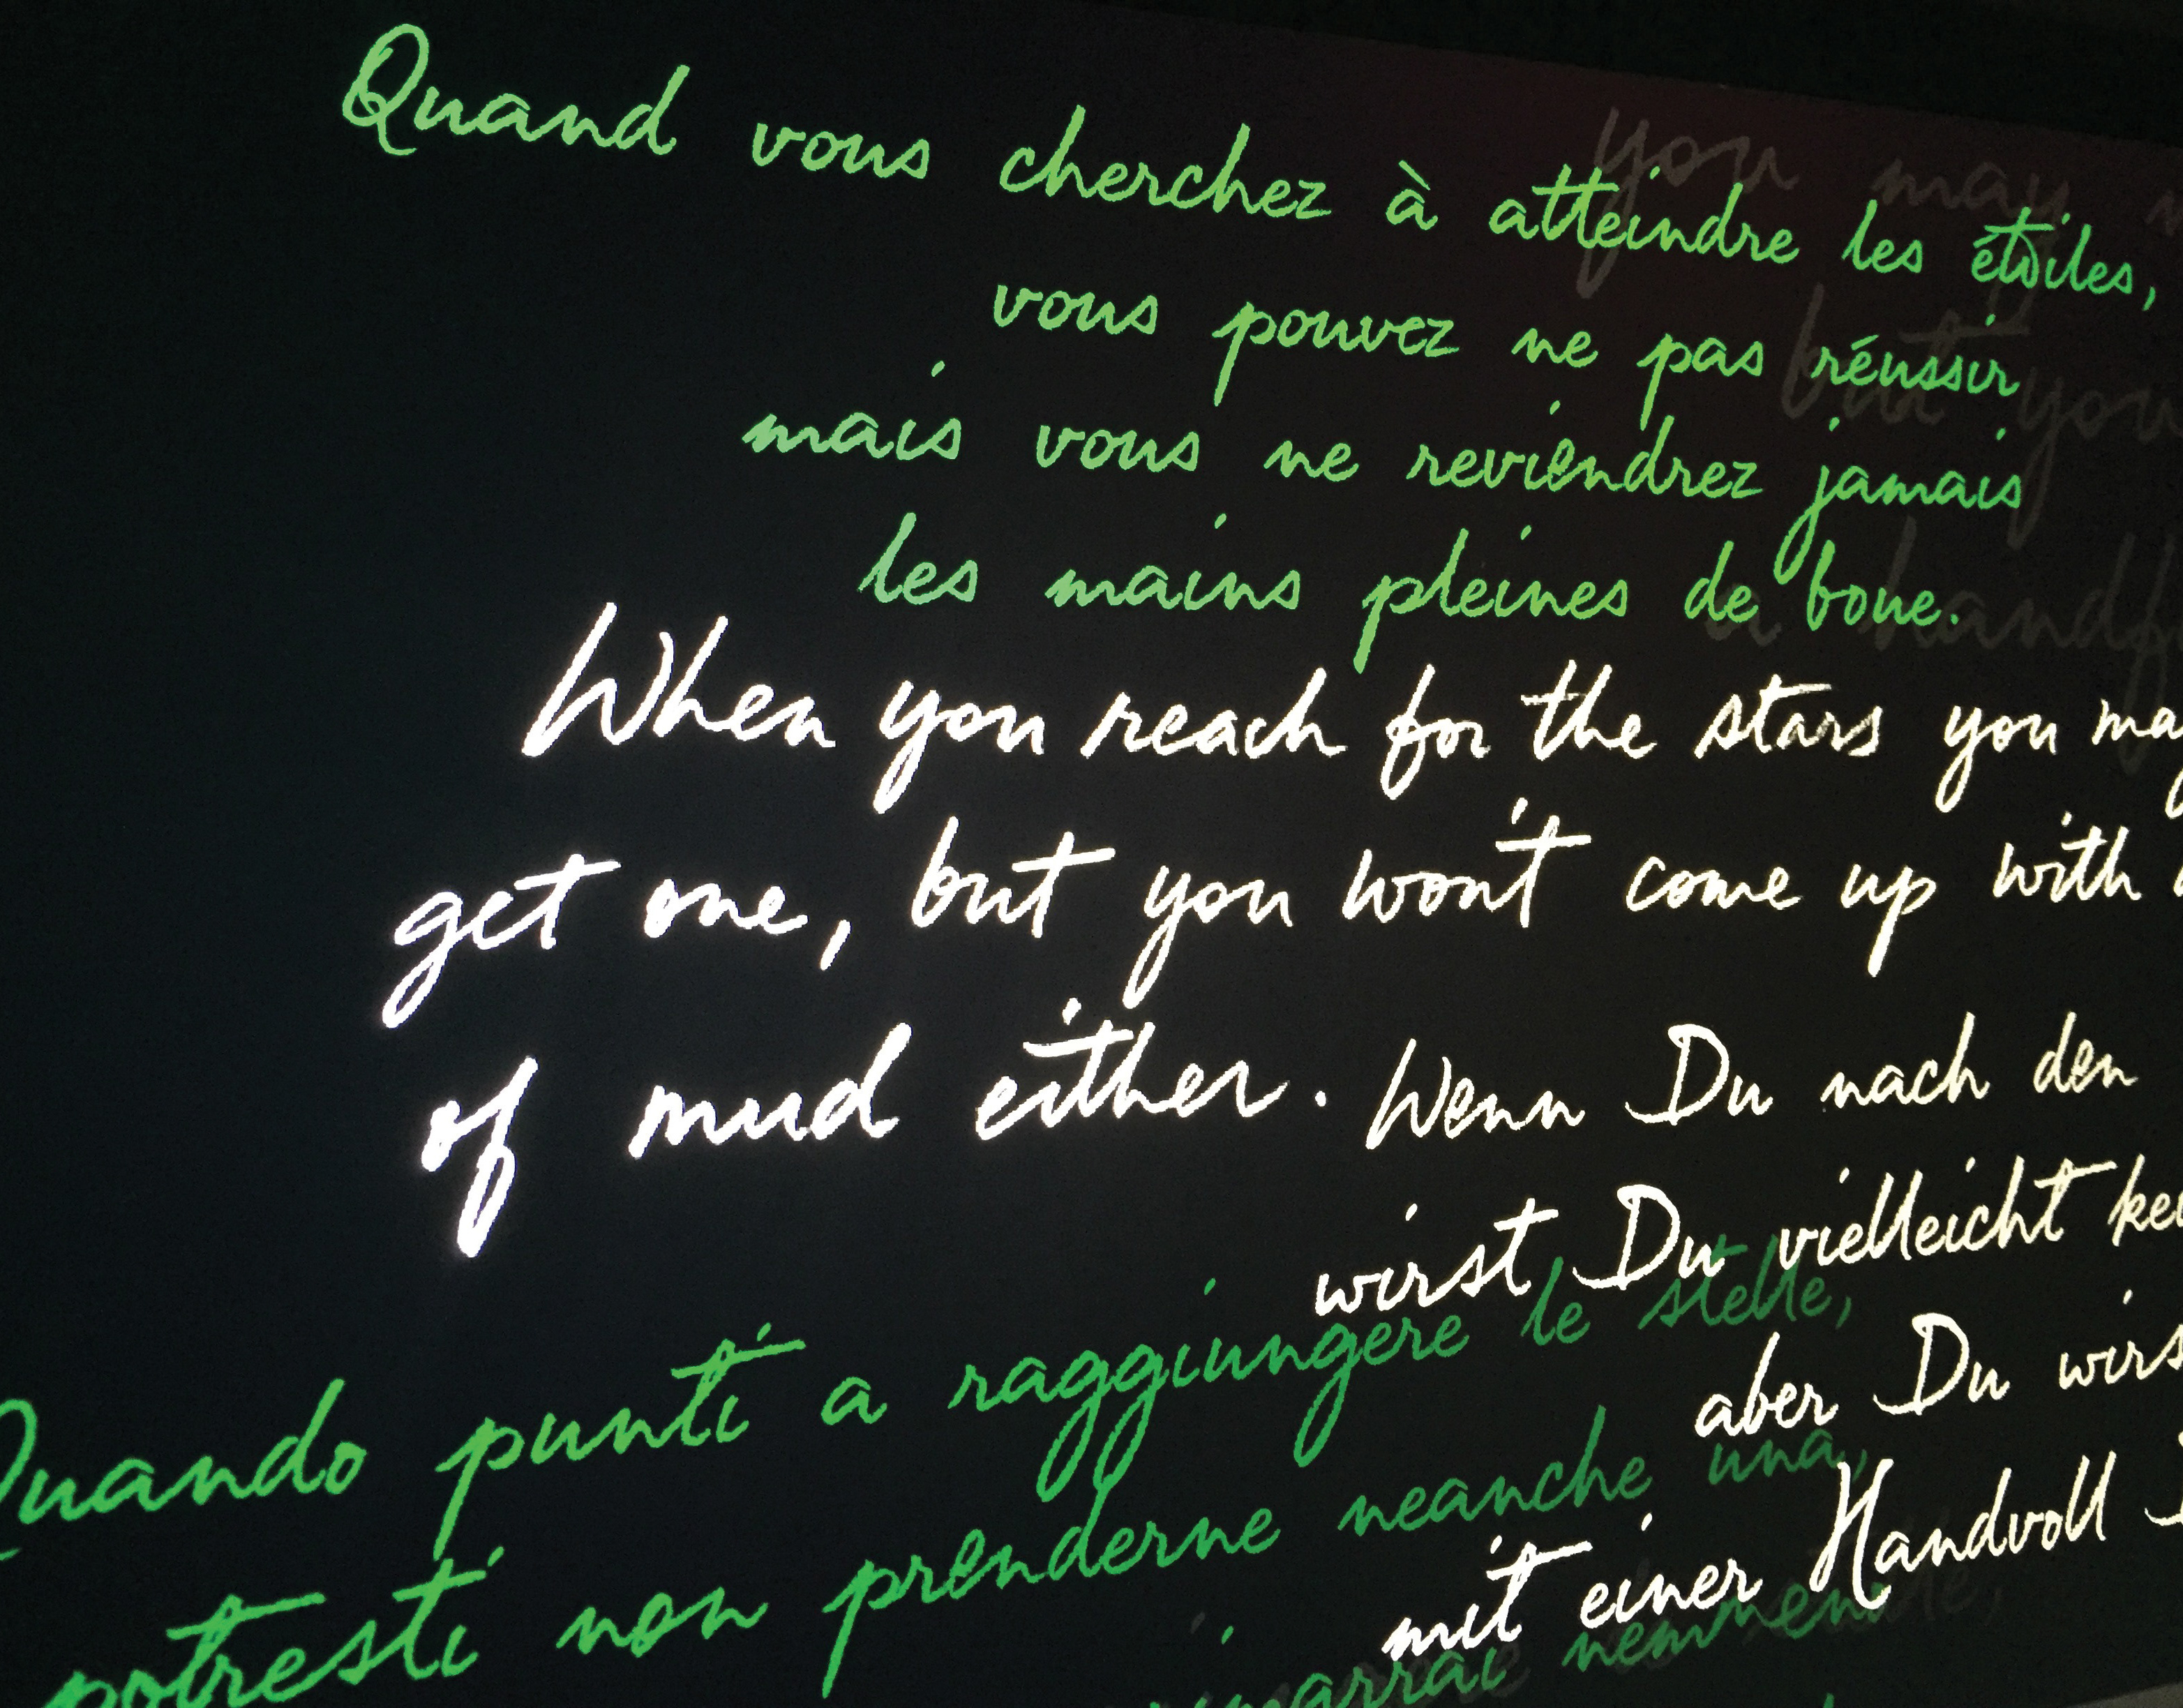 Quand vous cherchez à atteindre les étoiles,
vous pouvez ne pas réussir
mais vous ne reviendrez jamais
les mains pleines de boue.
you may
but you
a
When you reach for the stars you
get one, but you won't come up with
of mud either.
Wenn Du nach den
wirst Du vielleicht
aber Du
mit einer Handvoll
Quando punti a raggiungere le stelle,
potresti non prenderne neanche una,